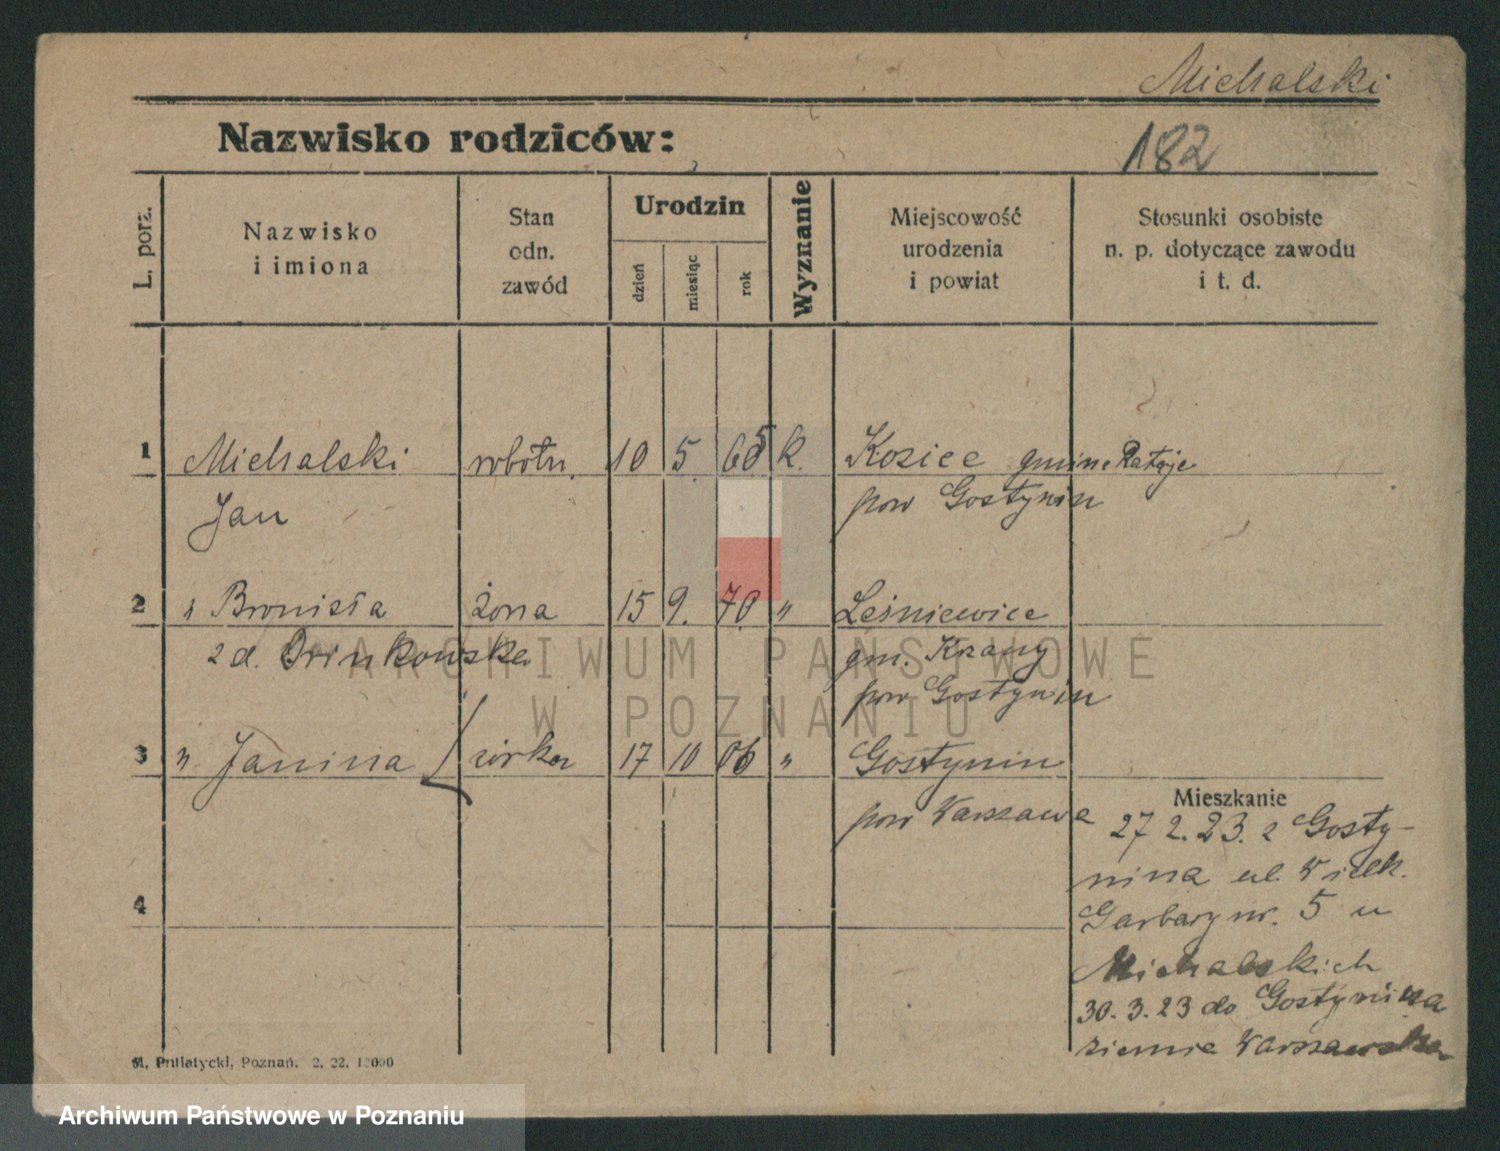 Michalski
Nazwisko rodziców:
182
L. porz.
Nazwisko
i imiona
Stan
odn.
zawód
Urodzin
dzień
miesiąc
rok
Wyznanie
Miejscowość
urodzenia
i powiat
Stosunki osobiste
n. p. dotyczące zawodu
i t. d.
1 Michalski robotn. 10 5 65 k. Kosice gmine Rataje
Jan pow Gostynin
2 " Bronisła żona 15 9. 70 " Leśniewice
z d. Drinkowska gm. Krany
pow Gostynin
3 " Janina córka 17 10 06 " Gostynin
pow Warszawa
4
Mieszkanie
27 2. 23. z Gosty-
nina ul. Wielk.
Garbary nr. 5 u
Michalskich
30. 3. 23 do Gostynina
ziemie Warszawska
M. Putiatycki, Poznań. 2. 22. 12000
ARCHIWUM PAŃSTWOWE
W POZNANIU
Archiwum Państwowe w Poznaniu